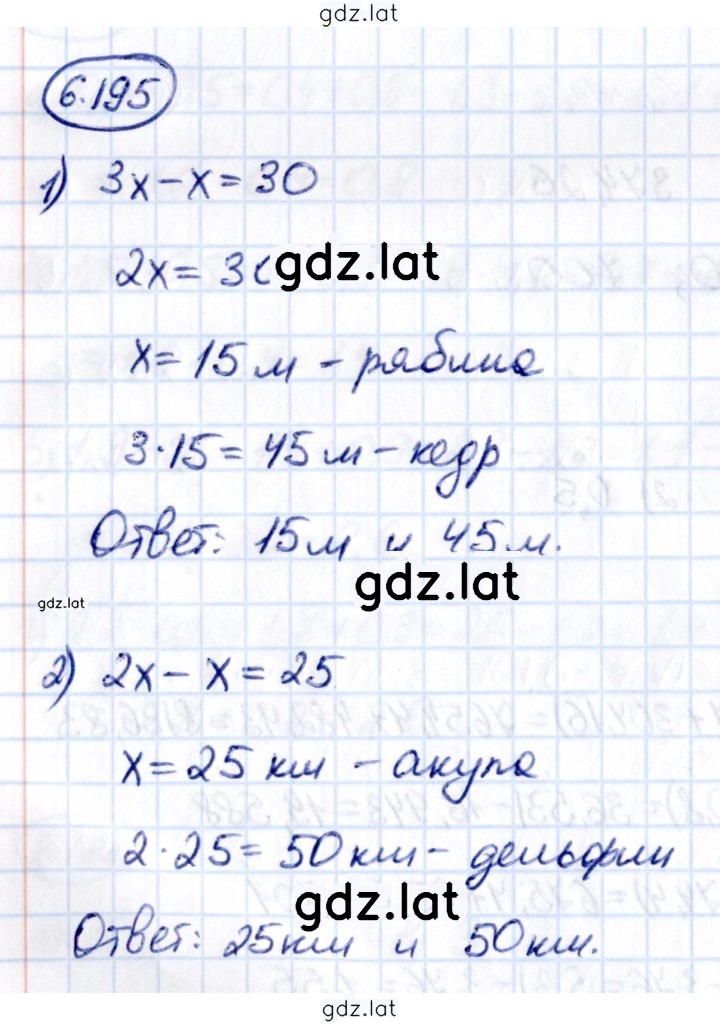 gdz.lat
6.195
1) 3x - x = 30
2x = 30
gdz.lat
x = 15 м - рябина
3·15 = 45 м - кедр
Ответ: 15 м и 45 м.
gdz.lat
gdz.lat
2) 2x - x = 25
x = 25 км - акула
2·25 = 50 км - дельфин
gdz.lat
Ответ: 25 км и 50 км.
gdz.lat